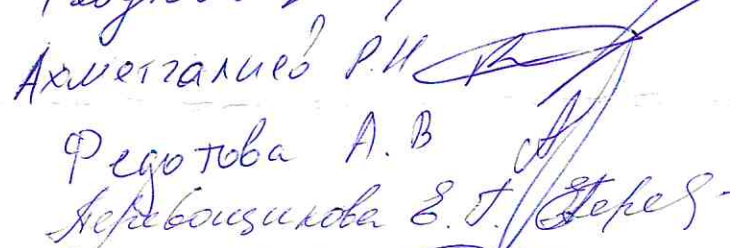 Ахметгалиев Р.Н
Федотова А.В
Перевощикова Е.Г.